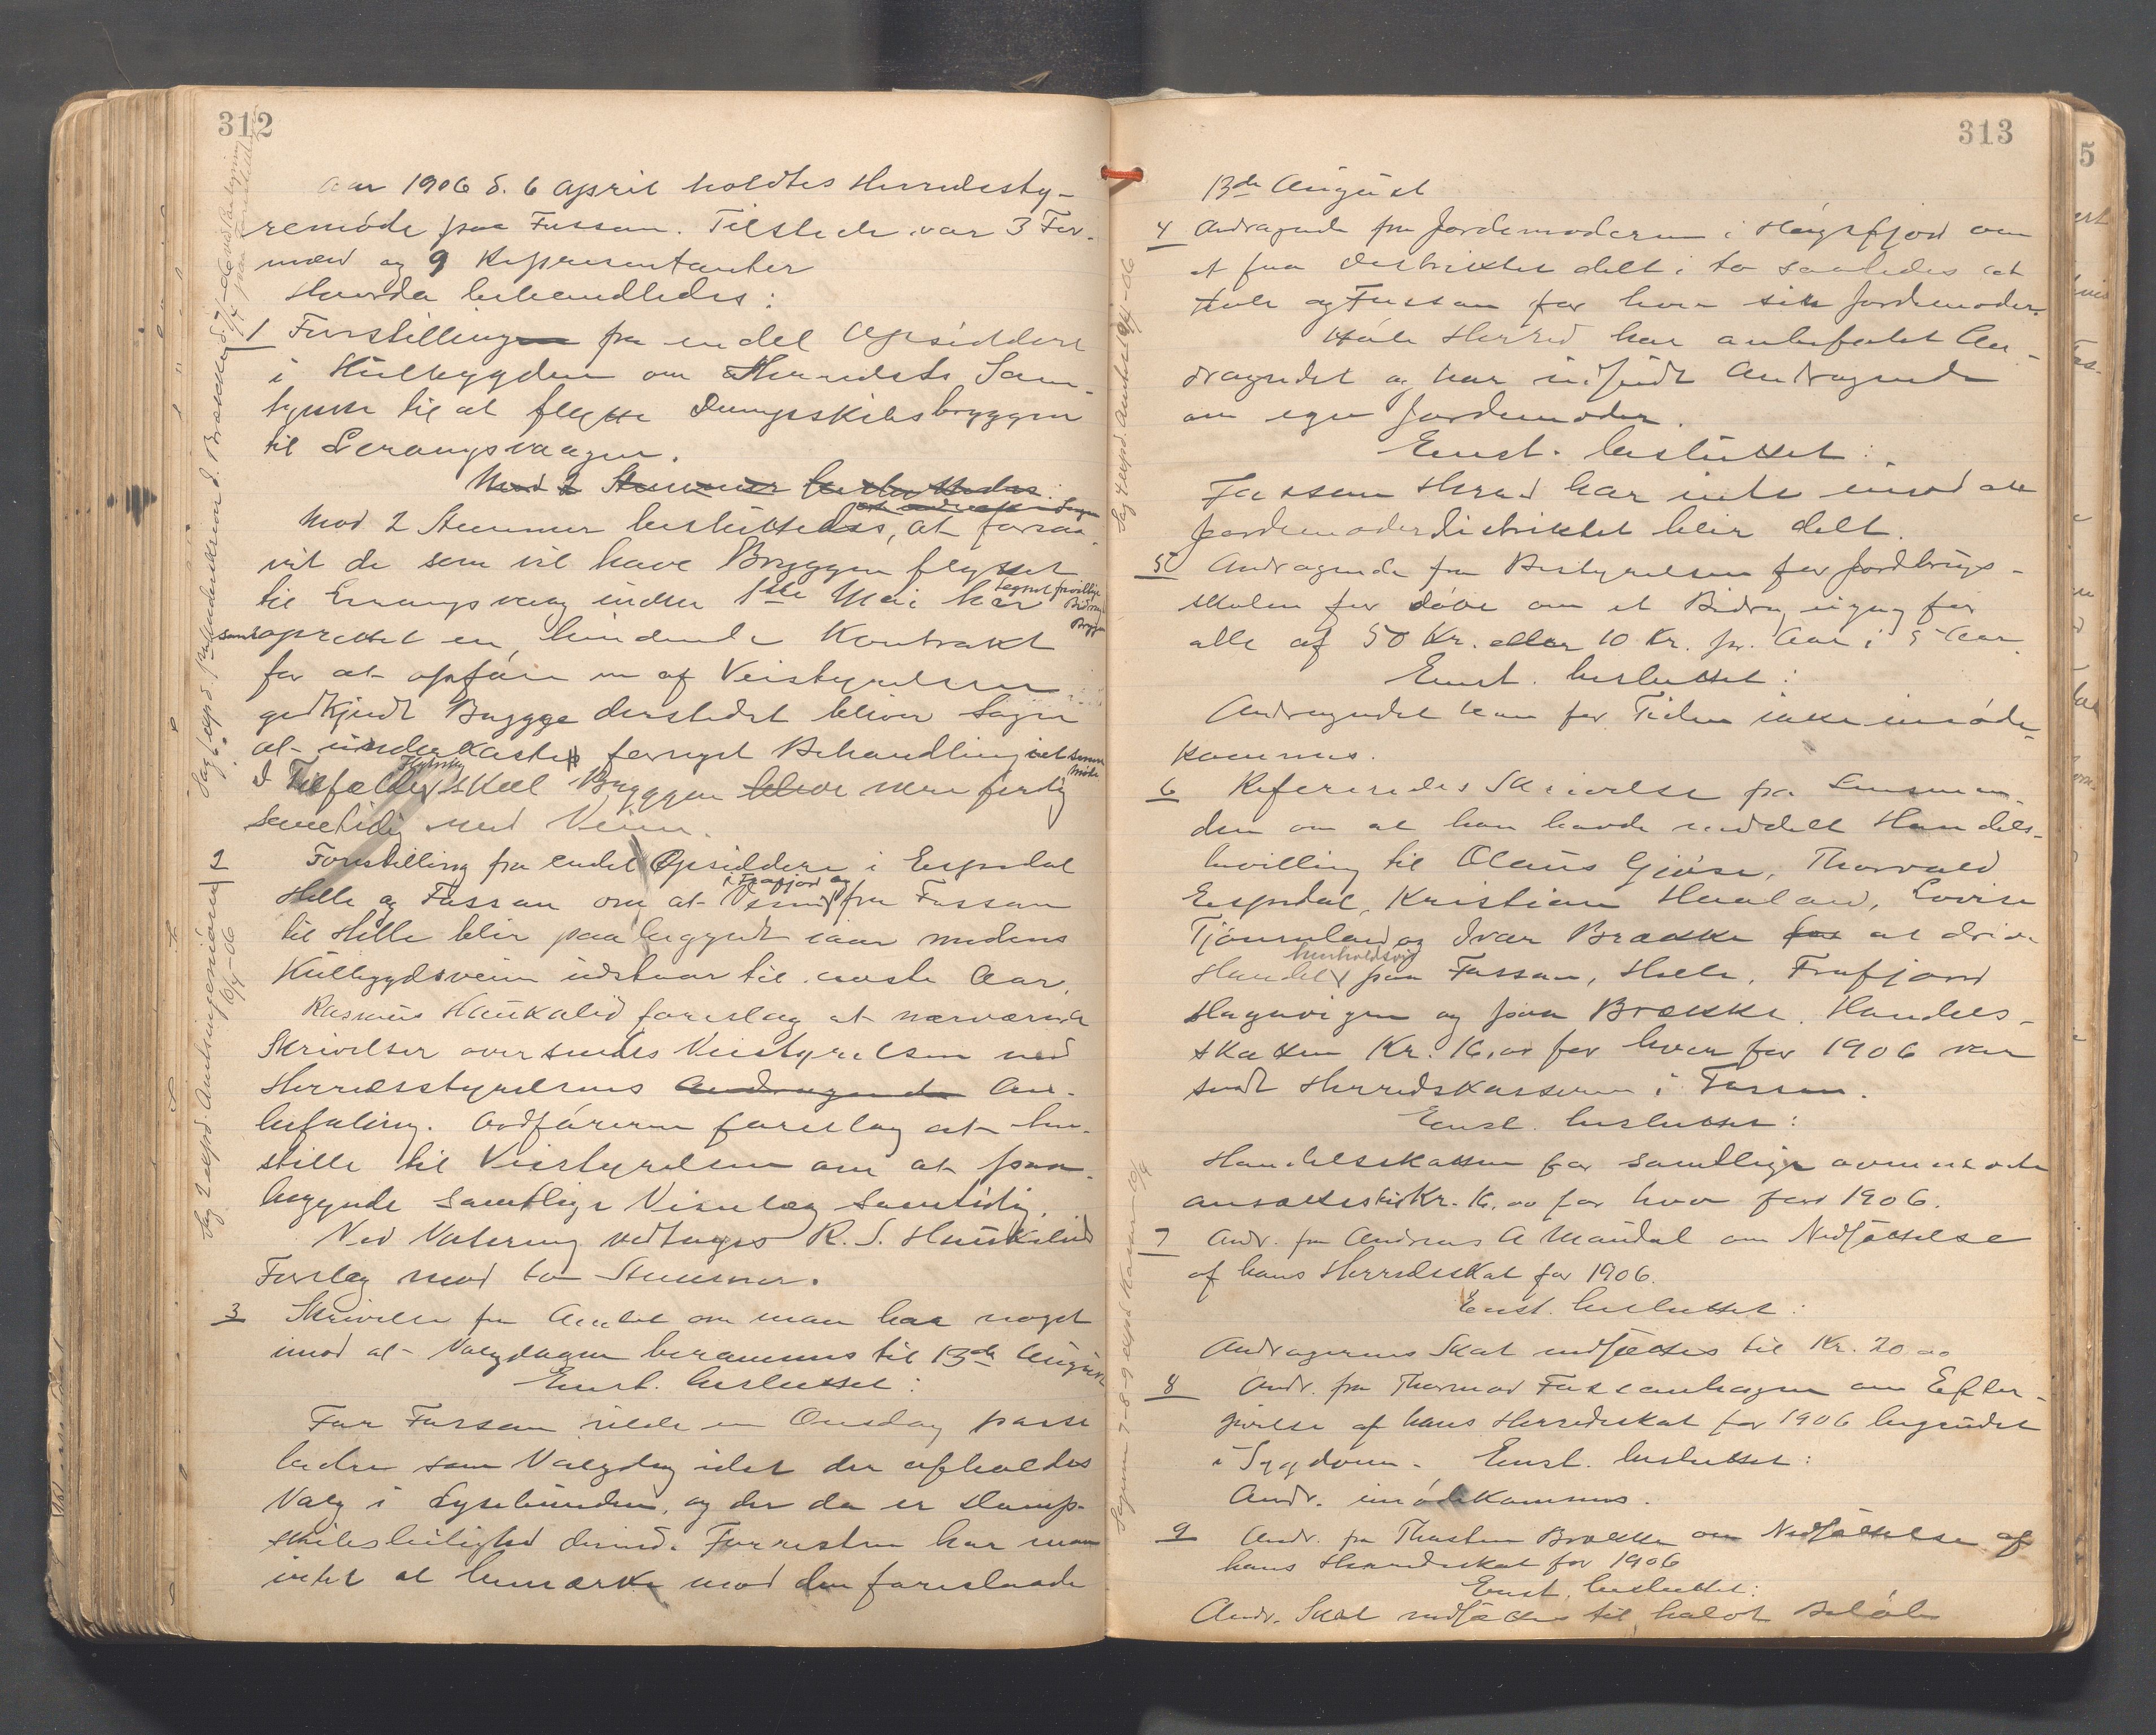 312
Aar 1906 d. 6 April holdtes Herredssty-
remøde paa Fossan. Tilstede var 3 For-
mænd og 9 Repræsentanter
Hvorda behandledes:
1 Forestillingen fra endel Opsiddere
i Hølebygden om Herredets Sam-
tykke til at flytte Dampskibsbryggen
til Lerangsvaagen.
Mod 2 Stemmer besluttedes:
Mod 2 Stemmer besluttedes, at forsaa-
vit de som vil have Bryggen flyttet
til Erangsvaag inden 1ste Mai har tegnet frivillige Bidrag Bryggen
samt oprettet en bindende Kontrakt
for at opføre en af Veistyrelsen
godkjendt Brygge derstedet bliver Sagen
at underkastes fornyet Behandling i et senere Møde
I Tilfælde Flytning skal Bryggen blive være ferdig
samtidig med Veien.
2 Forestilling fra endel Opsiddere i Espedal
Helle og Fossan om at Veien i Frafjord og fra Fossan
til Helle blir paabegyndt iaar medens
Hølebygdsveien udstaar til næste Aar.
Rasmus Haukalid foreslog at nærværende
Skrivelser oversendes Veistyrelsen med
Herredsstyrelsens Andragende An-
befaling. Ordføreren foreslog at hen-
stille til Veistyrelsen om at paa-
begynde samtlige Veianlæg samtidig.
Ved Votering vedtoges R. S. Haukalids
Forslag mod to Stemmer.
3 Skrivelse fra Amtet om man har noget
imod at Valgdagen berammes til 13de August
Enst. besluttet:
For Fossan vilde en Onsdag passe
bedre som Valgdag idet der afholdes
Valg i Lysebunden, og der da er Damp-
skibsleilighed derind. Forresten har man
intet at bemærke mod den foreslaade
Sag 2 exped. Amtsingeniøren 6/4-06
313
13de August
4 Andragende fra Jordemoderen i Høgsfjord om
at faa Distriktet delt i to saaledes at
Høle og Fossan for hver sin Jordemoder.
Høle Herred har anbefalet An-
dragendet og har indsendt Andragende
om egen Jordemoder.
Enst. besluttet:
Fossan Herred har intet imod at
Jordemoderdistriktet blir delt.
5 Andragende fra Bestyrelsen for Jordbrugs-
skolen for døve om et Bidrag engang for
alle af 50 Kr. eller 10 Kr. pr. Aar i 5 Aar.
Enst. besluttet:
Andragendet kan for Tiden ikke imøde-
kommes.
6 Refereredes Skrivelse fra Lensman-
den om at han havde meddelt Handels-
bevilling til Olaus Gjøse, Thorvald
Espedal, Kristian Haaland, Lovise
Tjørnsland og Ivar Brække for at drive
Handel henholdsvis paa Fossan, Helle, Frafjord
Hagavigen og paa Brække. Handels-
skatten Kr. 16,00 for hver for 1906 var
sendt Herredskassereren i Fossan.
Enst. besluttet:
Handelsskatten for samtlige ovennævnte
ansættes til Kr. 16,00 for hver for 1906.
7 Andr. fra Andreas A Maudal om Nedsættelse
af hans Herredsskat for 1906.
Enst. besluttet:
Andragerens Skat nedsættes til Kr. 20,00
8 Andr. fra Thormod Fossanhagen om Efter-
givelse af hans Herredsskat for 1906 begrundet
i Sygdom. Enst. besluttet:
Andr. imødekommes.
9 Andr. fra Thorsten Brække om Nedsættelse af
hans Herredsskat for 1906
Enst. besluttet:
Andr. Skat nedsættes til halvt Beløb
5